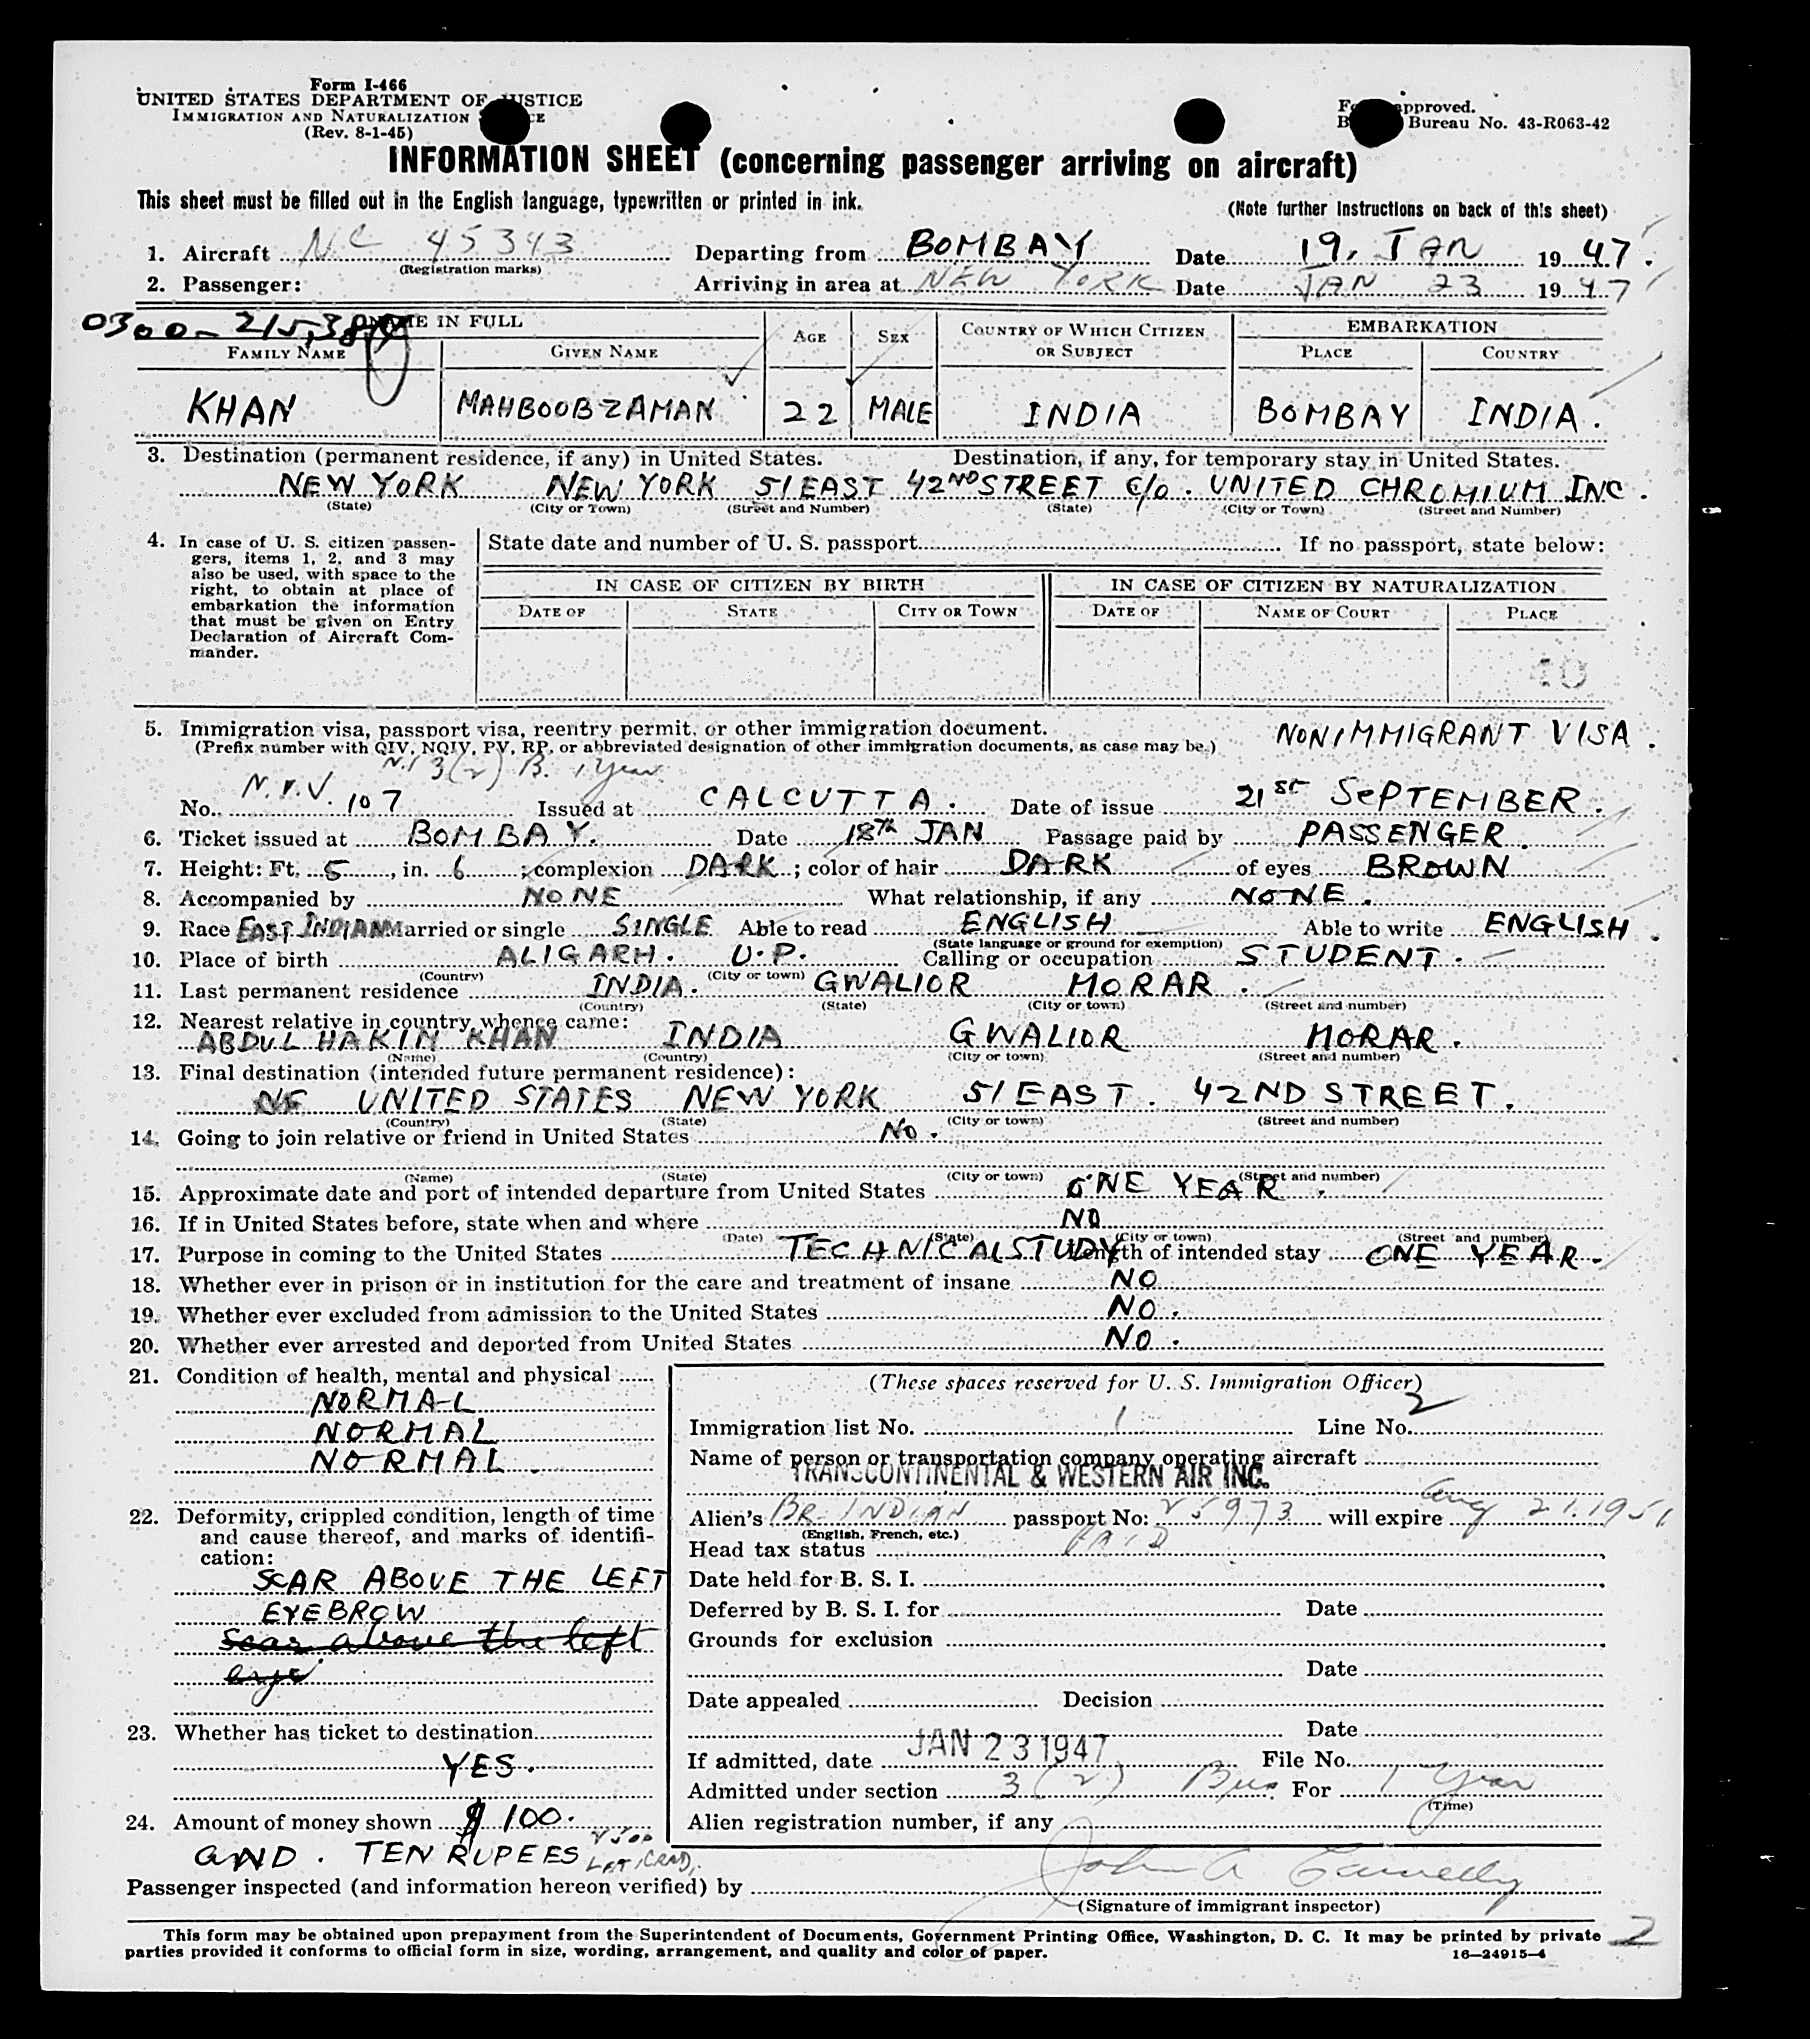 Form I-466
UNITED STATES DEPARTMENT OF JUSTICE
IMMIGRATION AND NATURALIZATION
(Rev. 8-1-45)
approved.
Bureau No. 43-R063-42
INFORMATION SHEET (concerning passenger arriving on aircraft)
This sheet must be filled out in the English language, typewritten or printed in ink.
(Note further instructions on back of this sheet)
1. Aircraft NC 45343 Departing from BOMBAY Date 19, JAN 1947.
(Registration marks)
2. Passenger: Arriving in area at NEW YORK Date JAN 23 1947
0300-215,38
NAME IN FULL AGE SEX COUNTRY OF WHICH CITIZEN OR SUBJECT EMBARKATION
FAMILY NAME GIVEN NAME PLACE COUNTRY
KHAN MAHBOOBZAMAN 22 MALE INDIA BOMBAY INDIA.
3. Destination (permanent residence, if any) in United States. Destination, if any, for temporary stay in United States.
NEW YORK NEW YORK 51 EAST 42ND STREET C/o. UNITED CHROMIUM INC.
(State) (City or Town) (Street and Number) (State) (City or Town) (Street and Number)
4. In case of U. S. citizen passengers, items 1, 2, and 3 may also be used, with space to the right, to obtain at place of embarkation the information that must be given on Entry Declaration of Aircraft Commander.
State date and number of U. S. passport If no passport, state below:
IN CASE OF CITIZEN BY BIRTH IN CASE OF CITIZEN BY NATURALIZATION
DATE OF STATE CITY OR TOWN DATE OF NAME OF COURT PLACE
5. Immigration visa, passport visa, reentry permit, or other immigration document. NONIMMIGRANT VISA.
(Prefix number with QIV, NQIV, PV, RP, or abbreviated designation of other immigration documents, as case may be.)
3(2) B. 1 Year
No. N.I.V. 107 Issued at CALCUTTA. Date of issue 21ST SEPTEMBER.
6. Ticket issued at BOMBAY. Date 18th JAN Passage paid by PASSENGER.
7. Height: Ft. 5, in. 6; complexion DARK; color of hair DARK of eyes BROWN
8. Accompanied by NONE What relationship, if any NONE.
9. Race EAST INDIAN Married or single SINGLE Able to read ENGLISH Able to write ENGLISH.
(State language or ground for exemption)
10. Place of birth ALIGARH. U.P. Calling or occupation STUDENT.
(Country) (City or town)
11. Last permanent residence INDIA. GWALIOR MORAR.
(Country) (State) (City or town) (Street and number)
12. Nearest relative in country whence came:
ABDUL HAKIM KHAN INDIA GWALIOR MORAR.
(Name) (Country) (City or town) (Street and number)
13. Final destination (intended future permanent residence):
UNITED STATES NEW YORK 51 EAST. 42ND STREET.
(Country) (State) (City or town) (Street and number)
14. Going to join relative or friend in United States NO.
(Name) (State) (City or town) (Street and number)
15. Approximate date and port of intended departure from United States ONE YEAR.
16. If in United States before, state when and where NO
(Date) (State) (City or town) (Street and number)
17. Purpose in coming to the United States TECHNICAL STUDY Length of intended stay ONE YEAR.
18. Whether ever in prison or in institution for the care and treatment of insane NO
19. Whether ever excluded from admission to the United States NO.
20. Whether ever arrested and deported from United States NO.
21. Condition of health, mental and physical
NORMAL
NORMAL
NORMAL.
22. Deformity, crippled condition, length of time and cause thereof, and marks of identification:
SCAR ABOVE THE LEFT
EYEBROW
Scar above the left
eye
23. Whether has ticket to destination
YES.
24. Amount of money shown $ 100.
AND. TEN RUPEES
(These spaces reserved for U. S. Immigration Officer)
Immigration list No. 1 Line No. 2
Name of person or transportation company operating aircraft
TRANSCONTINENTAL & WESTERN AIR INC.
Alien's BR. INDIAN passport No: 25973 will expire Aug 21.1951
(English, French, etc.)
Head tax status PAID
Date held for B. S. I.
Deferred by B. S. I. for Date
Grounds for exclusion
Date
Date appealed Decision
Date
If admitted, date JAN 23 1947 File No.
Admitted under section 3(2) Bus For 1 Year
(Time)
Alien registration number, if any
Passenger inspected (and information hereon verified) by John A
(Signature of immigrant inspector)
This form may be obtained upon prepayment from the Superintendent of Documents, Government Printing Office, Washington, D. C. It may be printed by private
parties provided it conforms to official form in size, wording, arrangement, and quality and color of paper.
16—24915-4
2